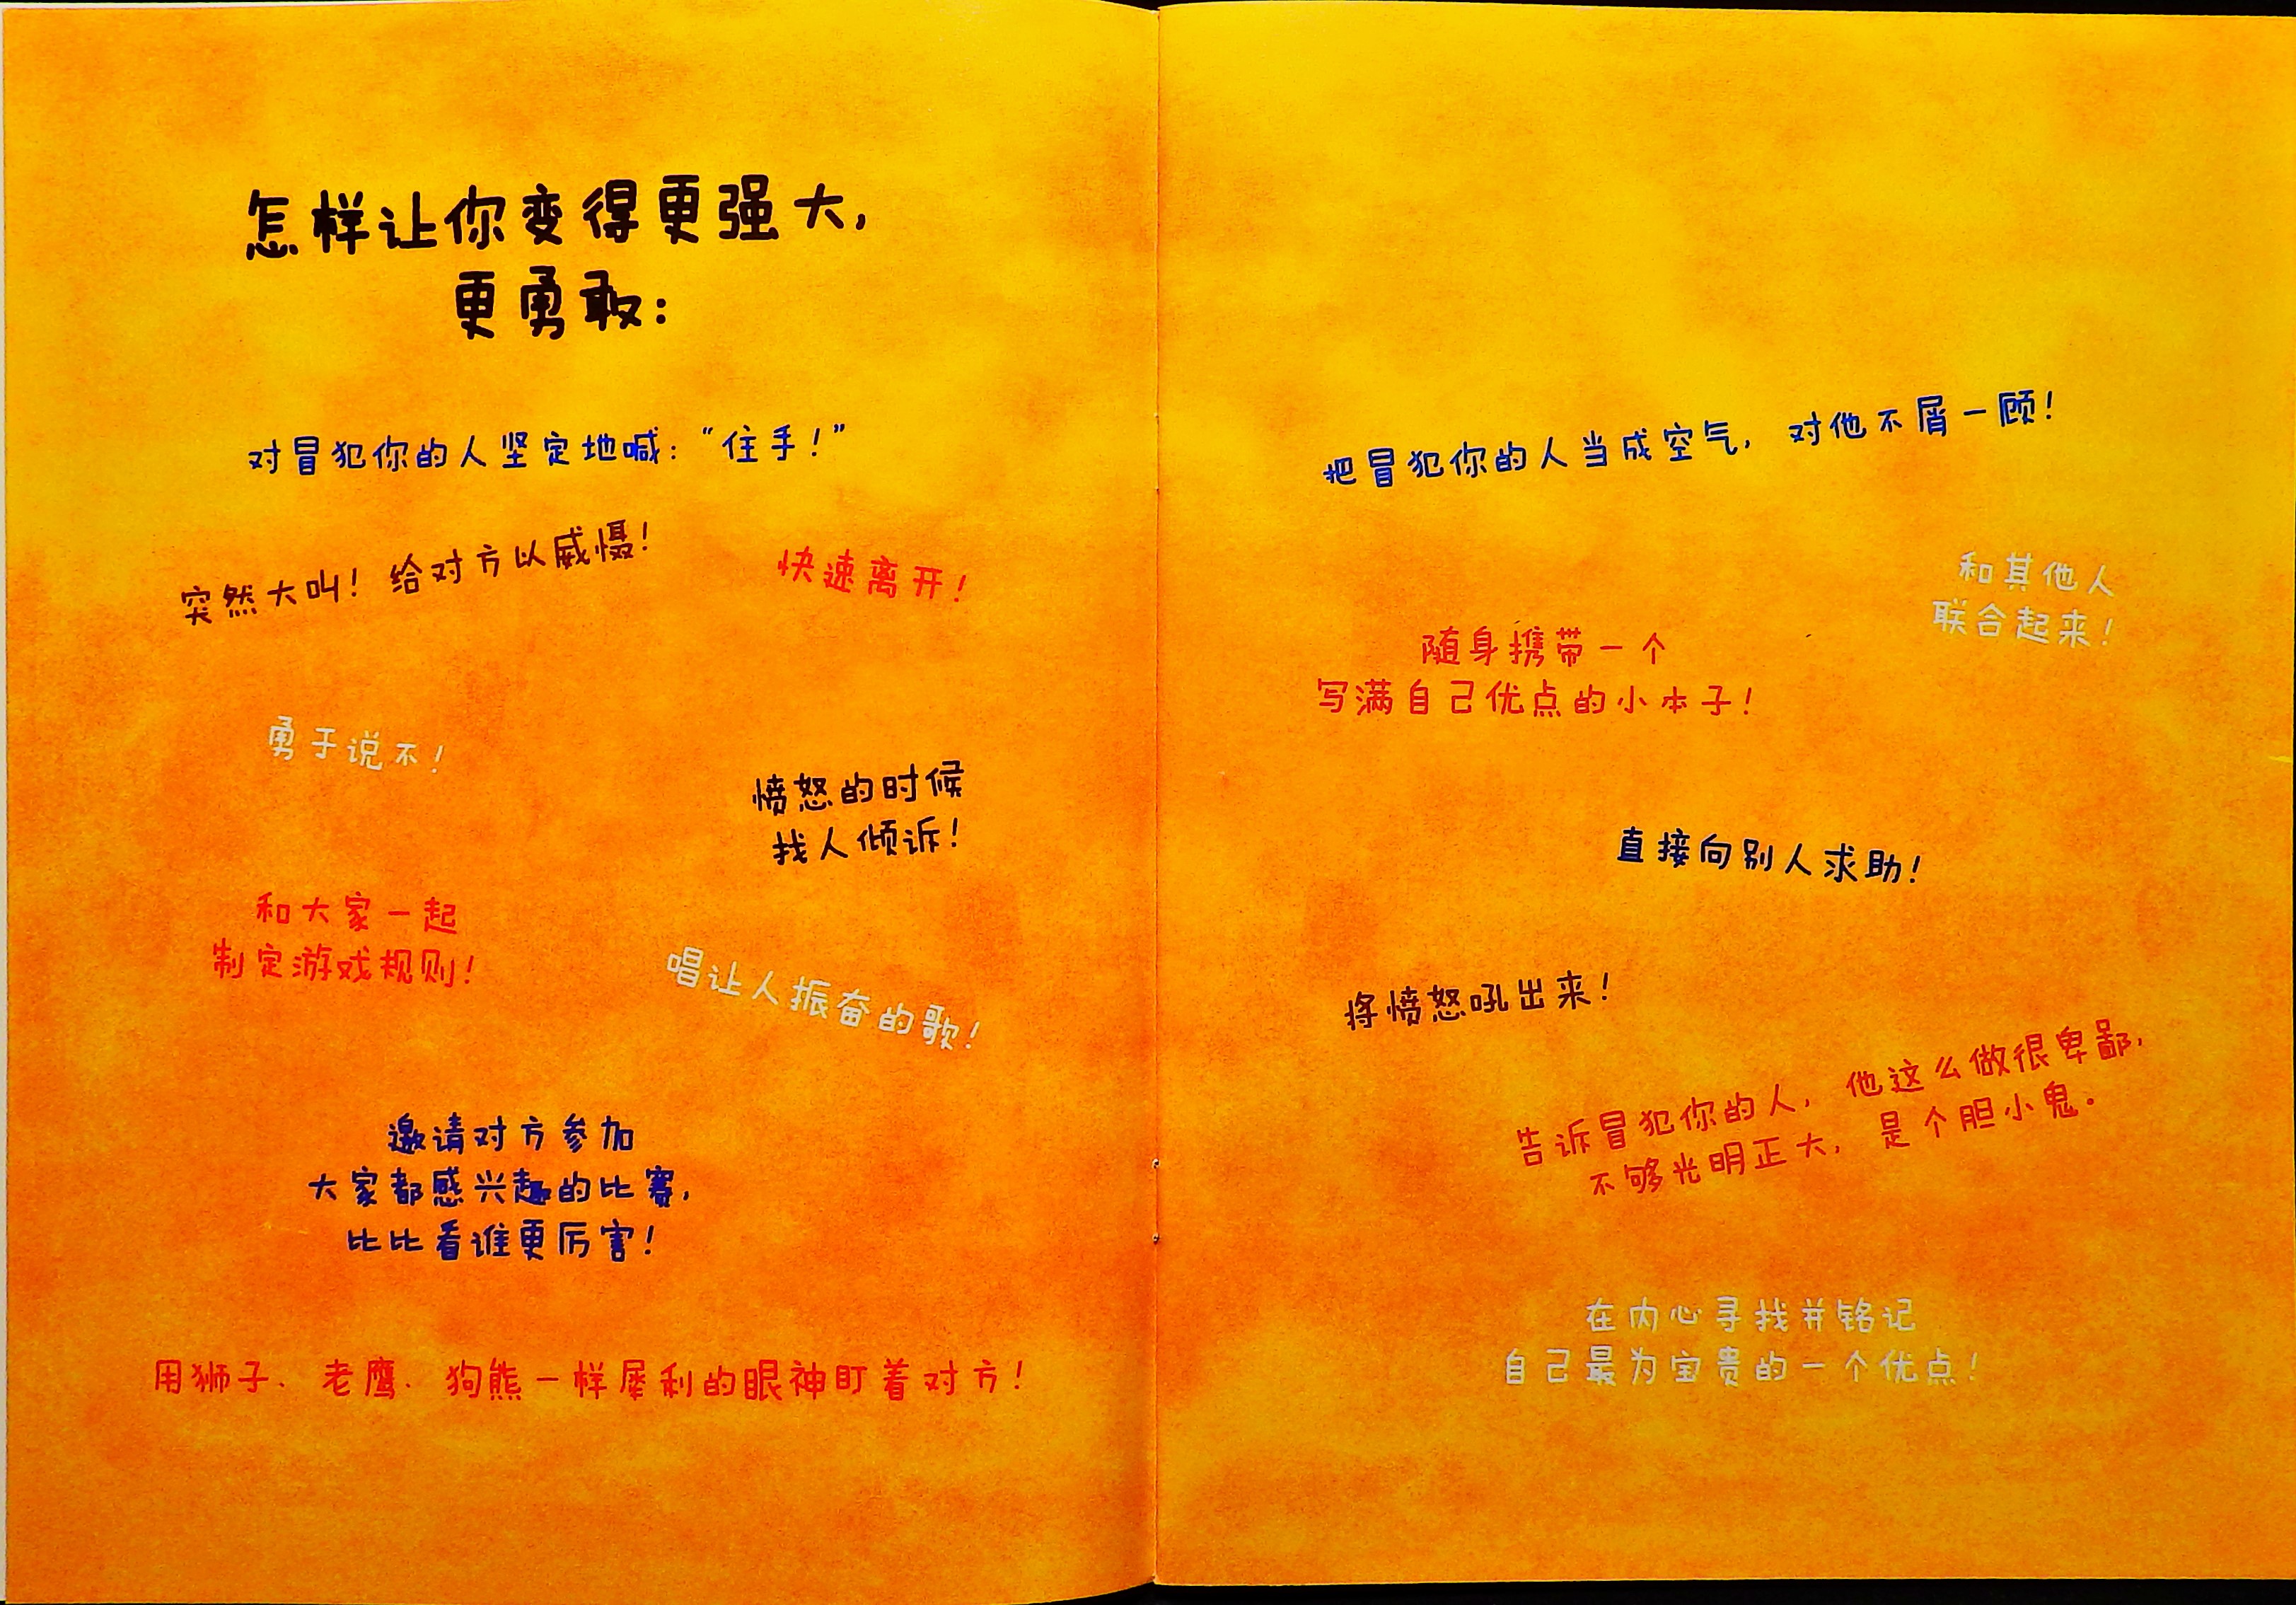 怎样让你变得更强大，
更勇敢：
对冒犯你的人坚定地喊：“住手！”
突然大叫！给对方以威慑！
快速离开！
勇于说不！
愤怒的时候
找人倾诉！
和大家一起
制定游戏规则！
唱让人振奋的歌！
邀请对方参加
大家都感兴趣的比赛，
比比看谁更厉害！
用狮子、老鹰、狗熊一样犀利的眼神盯着对方！
把冒犯你的人当成空气，对他不屑一顾！
和其他人
联合起来！
随身携带一个
写满自己优点的小本子！
直接向别人求助！
将愤怒吼出来！
告诉冒犯你的人，他这么做很卑鄙，
不够光明正大，是个胆小鬼。
在内心寻找并铭记
自己最为宝贵的一个优点！